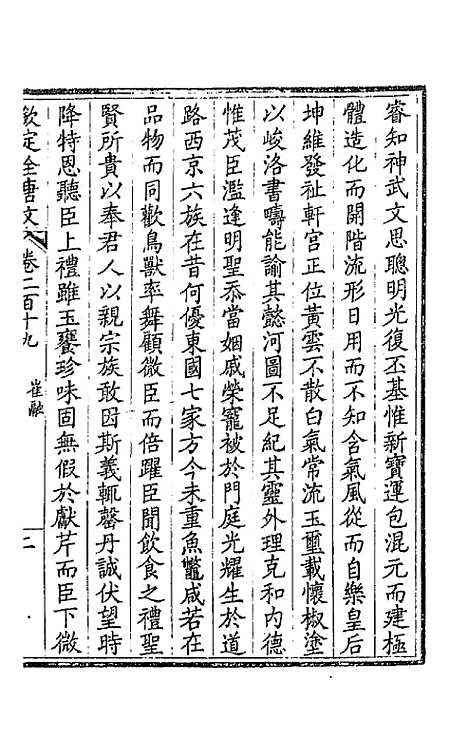 睿知神武文思聰明光復丕基惟新寶運包混元而建極
體造化而開階流形日用而不知含氣風從而自樂皇后
坤維發祉軒宫正位黃雲不散白氣常流玉璽載懷椒塗
以峻洛書疇能諭其懿河圖不足紀其靈外理克和内德
惟茂臣濫逢明聖忝當姻戚榮寵被於門庭光耀生於道
路西京六族在昔何優東國七家方今未重魚鼈咸若在
品物而同歡鳥獸率舞顧微臣而倍躍臣聞飲食之禮聖
賢所貴以奉君人以親宗族敢因斯義輒罄丹誠伏望時
降特恩聽臣上禮雖玉饔珍味固無假於獻芹而臣下微
欽定全唐文 卷二百十九 崔融 二